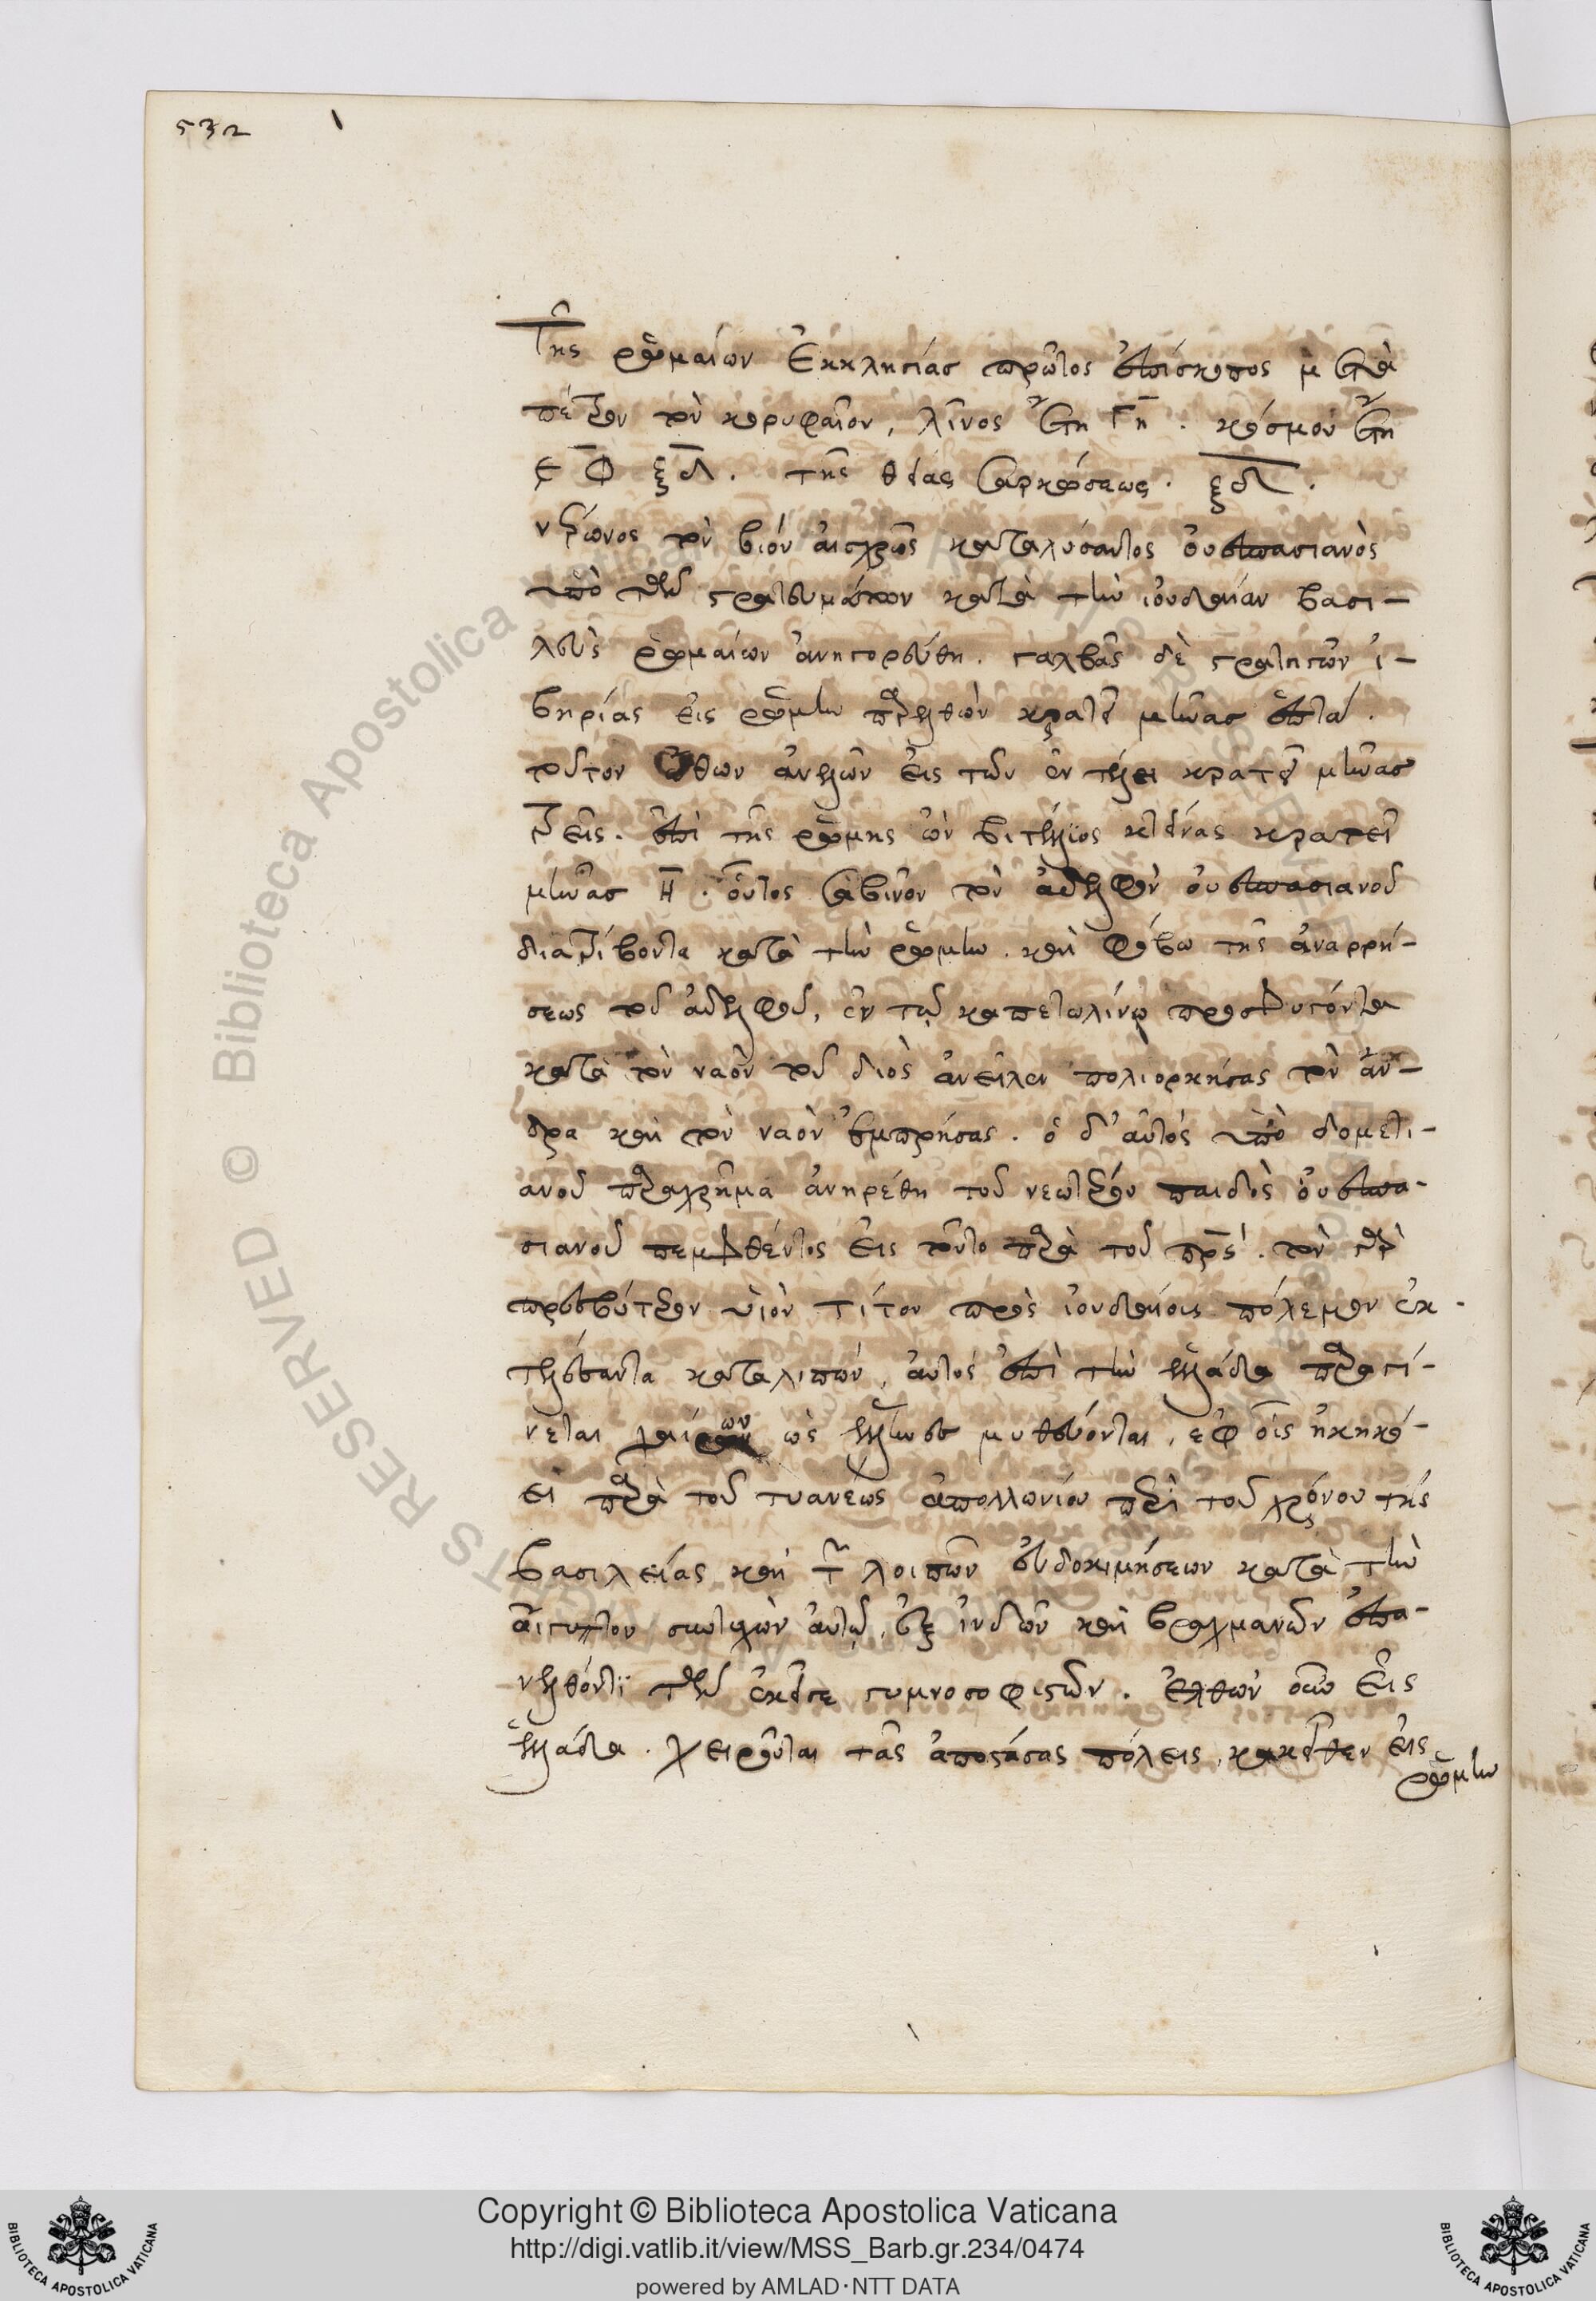 532
Τῆς ῥωμαίων ἐκκλησίας πρῶτος ἐπίσκοπος μετὰ
πέτρον τὸν κορυφαῖον, λῖνος ἔτη ιη. κόσμου ἔτη
εφξδ. τῆς θείας σαρκώσεως. ξδ.
νέρωνος τὸν βίον αἰσχρῶς καταλύσαντος οὐεσπασιανὸς
ὑπὸ τῶν στρατευμάτων κατὰ τὴν ἰουδαίαν βασι-
λεὺς ῥωμαίων ἀνηγορεύθη. γαλβᾶς δὲ στρατηγῶν ἰ-
βηρίας εἰς ῥώμην παρελθὼν κρατεῖ μῆνας ἑπτά.
τοῦτον ὄθων ἀνελὼν εἷς τῶν ἐν τέλει κρατεῖ μῆνας
τρεῖς. ἐπὶ τῆς ῥώμης ὢν βιτέλλιος κτείνας κρατεῖ
μῆνας η. οὗτος σαβῖνον τὸν ἀδελφὸν οὐεσπασιανοῦ
διατρίβοντα κατὰ τὴν ῥώμην. καὶ φόβω τῆς ἀναρρή-
σεως τοῦ ἀδελφοῦ, ἐν τῷ καπετωλίνῳ προσφυγόντα
κατὰ τὸν ναὸν τοῦ διὸς ἀνεῖλεν πολιορκήσας τὸν ἄν-
δρα καὶ τὸν ναὸν ἐμπρήσας. ὁ δ' αὐτὸς ὑπὸ δομετι-
ανοῦ παραχρῆμα ἀνηρέθη τοῦ νεωτέρου παιδὸς οὐεσπα-
σιανοῦ πεμφθέντος εἰς τοῦτο παρὰ τοῦ πρς. τὸν γὰρ
πρεσβύτερον υἱὸν τίτον πρὸς ἰουδαίοις πόλεμον ἐκ-
τελέσαντα καταλιπών, αὐτὸς ἐπὶ τὴν ἑλλάδα παραγί-
νεται χαίρων ὡς ἕλληνες μυθεύονται, ἐφ οἷς ἠκηκό-
ει παρὰ τοῦ τυανέως ἀπολλωνίου περὶ τοῦ χρόνου τῆς
βασιλείας καὶ τῶν λοιπῶν εὐδοκιμήσεων κατὰ τὴν
αἴγυπτον συντυχὼν αὐτῷ, ἐξ ἰνδῶν καὶ βραχμανῶν ἐπα-
νελθόντι τῶν ἐκεῖσε γυμνοσοφιστῶν. ἐλθὼν οὖν εἰς
ἑλλάδα. χειροῦται τὰς ἀποστάσας πόλεις, κακεῖθεν εἰς
ῥώμην
BIBLIOTECA APOSTOLICA VATICANA
Copyright © Biblioteca Apostolica Vaticana
http://digi.vatlib.it/view/MSS_Barb.gr.234/0474
powered by AMLAD·NTT DATA
BIBLIOTECA APOSTOLICA VATICANA